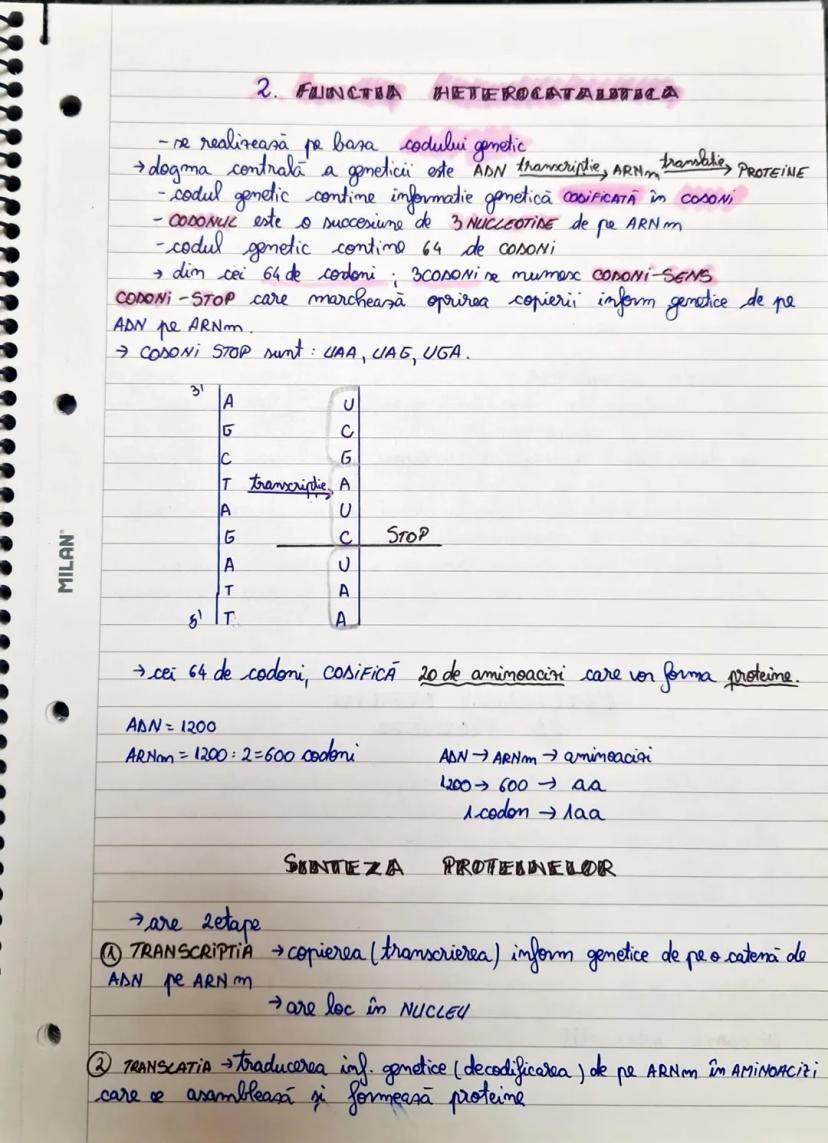 2. FUNCTIA HETEROCATALITICA
- se realizează pe baza codului genetic
→ dogma contrală a geneticii este ADN transcriptie→ ARNm translatie→ PROTEINE
- codul genetic contine informatie genetică CODIFICATĂ în CODONI
- CODONUL este o succesiune de 3 NUCLEOTIDE de pe ARNm
- codul genetic contine 64 de CODONI
→ din cei 64 de codoni ; 3CODONI se numesc CODONI-SENS
CODONI-STOP care marchează oprirea copierii inform genetice de pe
ADN pe ARNm.
→ CODONI STOP sunt: UAA, UAG, UGA.
3' A U
G C
C G
T transcriptie→ A
A U
G C STOP
A U
T A
5' T A
→ cei 64 de codoni, CODIFICĂ 20 de aminoacizi care vor forma proteine.
ADN = 1200
ARNm = 1200 : 2 = 600 codoni
ADN → ARNm → aminoacizi
1200 → 600 → aa
1 codon → 1aa
SINTEZA PROTEINELOR
→ are 2etape
① TRANSCRIPTIA → copierea (transcrierea) inform genetice de pe o catenă de
ADN pe ARNm
→ are loc în NUCLEU
② TRANSLATIA → traducerea inf. genetice (decodificarea) de pe ARNm în AMINOACIZI
care se asamblează și formează proteine
MILAN